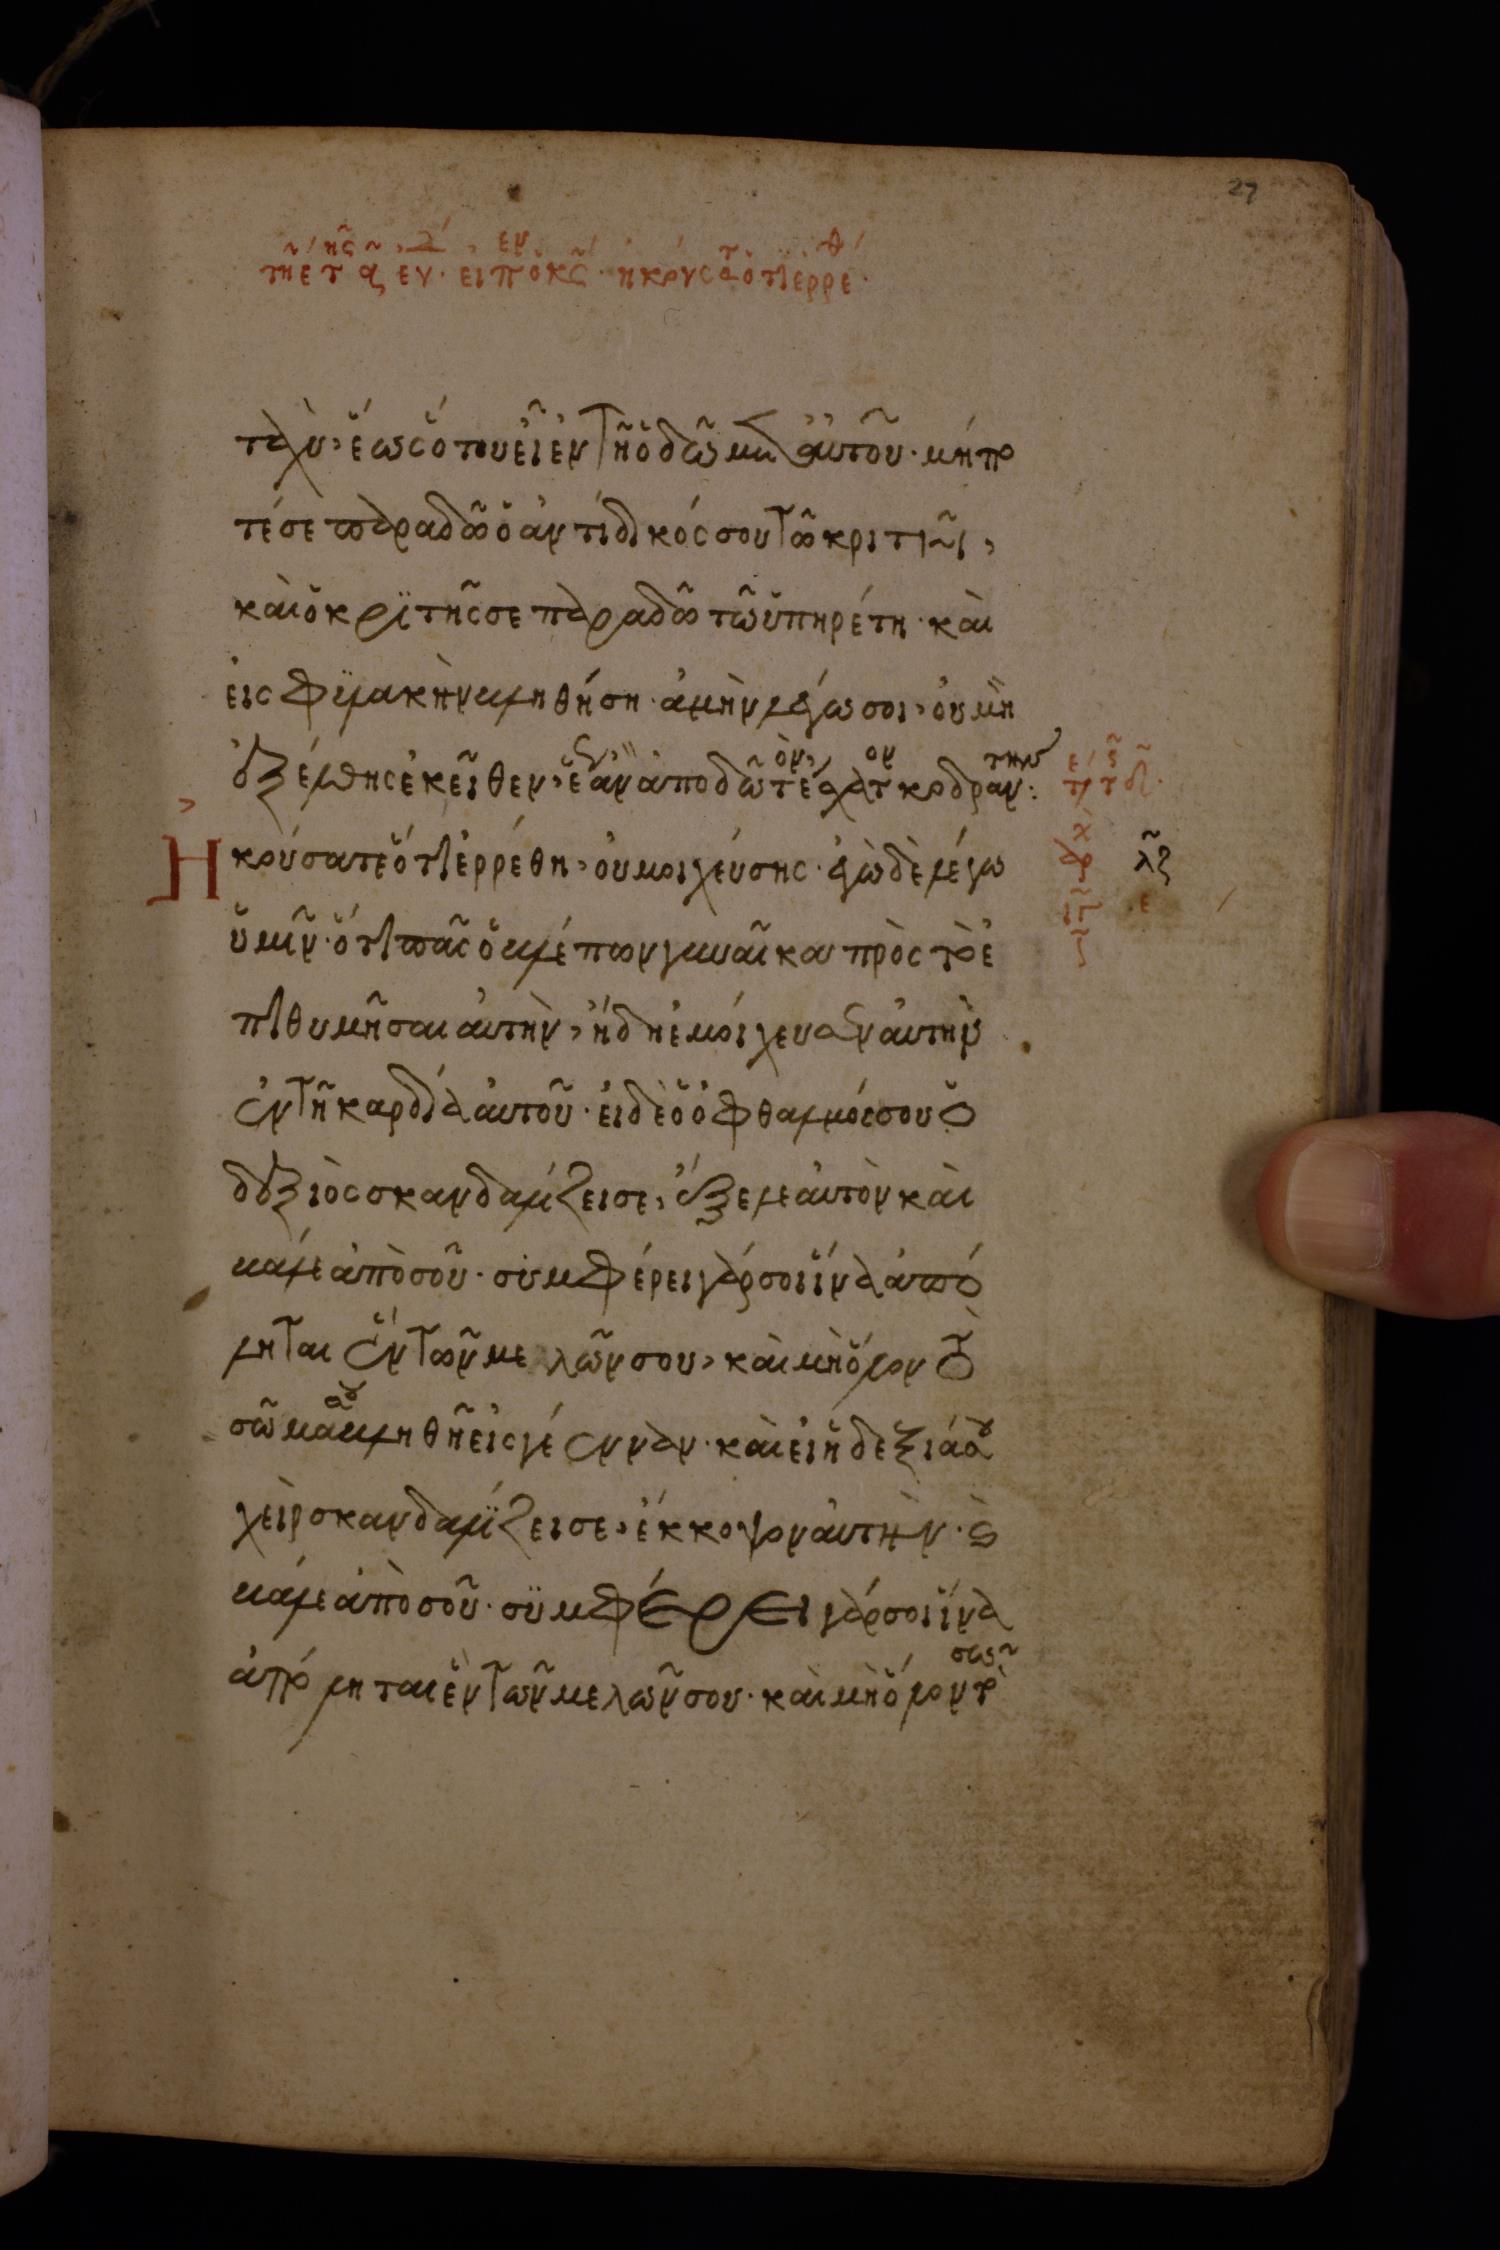 27
τῆς ε τ ας εν · ειπ ο κς · ηκουσατ οτι ερρεθ ·
ταχὺ, ἕως ὅτου εἶ ἐν τῆ ὁδῶ μετ αὐτοῦ · μήπο
τέ σε παραδῶ ὁ ἀντίδικός σου τῶ κριτῆι,
καὶ ὁ κριτής σε παραδῶ τῶ ὑπηρέτη · καὶ
εἰς φυλακὴν βληθήση · ἀμὴν λέγω σοι, οὐ μὴ
ἐξέλθης ἐκεῖθεν, ἕως ἂν ἀποδῶς τὸν ἔσχατον κοδράντην :
Ἠκούσατε ὅτι ἐρρέθη, οὐ μοιχεύσης · ἐγὼ δὲ λέγω
ὑμῖν · ὅτι πᾶς ὁ βλέπων γυναῖκα πρὸς τὸ ἐ
πιθυμῆσαι αὐτὴν, ἤδη ἐμοίχευσεν αὐτὴν
ἐν τῆ καρδία αὐτοῦ · εἰ δὲ ὁ ὀφθαλμός σου ὁ
δεξιὸς σκανδαλίζει σε, ἔξελε αὐτὸν καὶ
βάλε ἀπὸ σοῦ · συμφέρει γάρ σοι ἵνα ἀπό
ληται ἓν τῶν μελῶν σου, καὶ μὴ ὅλον τὸ
σῶμα σου βληθῆ εἰς γέενναν · καὶ εἰ ἡ δεξιά σου
χεὶρ σκανδαλίζει σε, ἔκκοψον αὐτὴν · καὶ
βάλε ἀπὸ σοῦ · συμφέρει γάρ σοι ἵνα
ἀπόληται ἓν τῶν μελῶν σου · καὶ μὴ ὅλον τὸ σῶμα